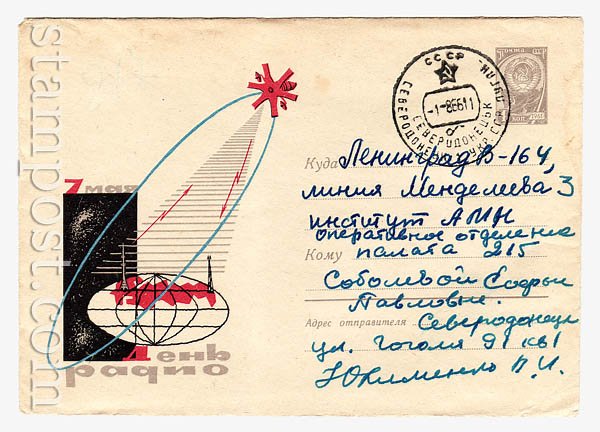 stampost.com
7 мая
День
радио
СССР
СЕВЕРОДОНЕЦЬК
-1-8 66 11
Куда Ленинград В-164,
линия Менделеева, 3
институт АМН
оперативное отделение
Кому палата 215
Соболевой Софьи
Павловне.
Адрес отправителя Северодонецк
ул. Гоголя 91 кв1
Юхименко П.И.